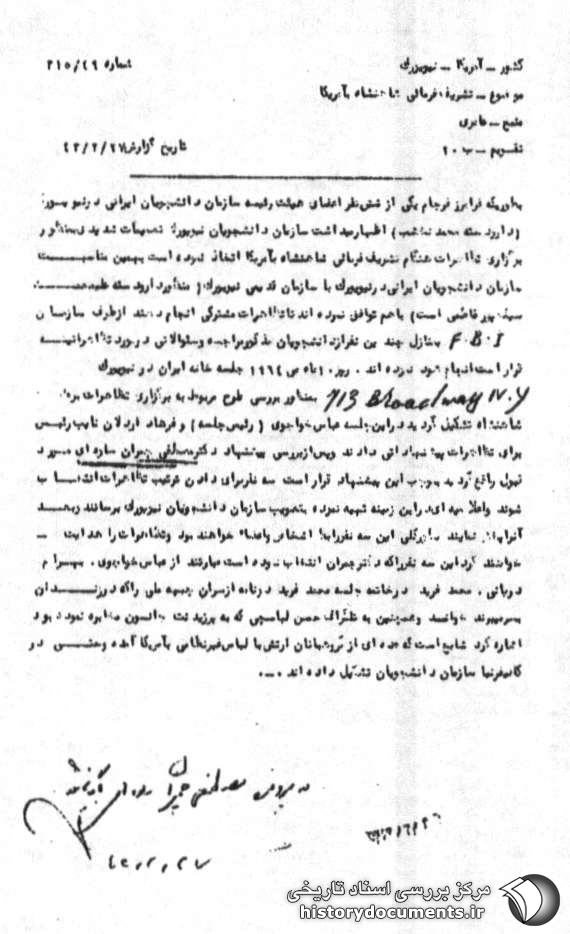 کشور ـ آمریکا ـ نیویورک شماره ۲۱۵/۴۶
موضوع ـ تشریف فرمائی شاهنشاه بآمریکا
منبع ـ
تقویم ـ ب ۲۰ تاریخ گزارش ۴۳/۲/۲۷
بطوریکه فرامرز فرجام یکی از شش نفر اعضای هیئت رئیسه سازمان دانشجویان ایرانی در نیویورک
(دارودسته محمد نخشب) اظهار میداشت سازمان دانشجویان نیویورک تصمیمات شدیدی بمنظور
برگزاری تظاهرات هنگام تشریف فرمائی شاهنشاه بآمریکا اتخاذ نموده است بهمین مناسبت
سازمان دانشجویان ایرانی در نیویورک با سازمان قدیمی نیویورک (منظور دارودسته
است) باهم توافق نموده اند تا تظاهرات مشترکی انجام دهند از طرف سازمان
F.B.I بمنازل چند تن از دانشجویان مذکور مراجعه و سئوالاتی در مورد تظاهراتیکه
قرار است انجام شود نموده اند . روز ماه می ۱۹۶۴ جلسه خانه ایران در نیویورک
713 Broadway N.Y بمنظور بررسی طرح مربوط به برگزاری تظاهرات
شاهنشاه تشکیل گردید در این جلسه عباس خواجوی (رئیس جلسه) و فرهاد اردلان نایب رئیس
برای تظاهرات پیشنهاداتی دادند و پس از بررسی پیشنهاد دکتر مصطفی چمران ساوه ای مورد
قبول واقع گردید بموجب این پیشنهاد قرار است سه نفر برای دادن ترتیب تظاهرات انتخاب
شوند و اعلامیه ای در این زمینه تهیه نموده بتصویب سازمان دانشجویان نیویورک برسانند و بعد
آنرا نمایند بطورکلی این سه نفر رابط اشخاص و اعضاء خواهند بود و تظاهرات را هدایت ـ
خواهند کرد این سه نفر را که دکتر چمران انتخاب نموده است عبارتند از عباس خواجوی . بهرام
. محمد فرید در خاتمه جلسه محمد فرید درنامه از سران جبهه ملی را که در زندان
بسرمیبرند خوانده و همچنین به تلگراف حسن لباسچی که به پرزیدنت جانسون مخابره نموده بود
اشاره کرد شایع است که عده ای از گروهبانان ارتش با لباس غیرنظامی بآمریکا آمده و حتی در
کالیفرنیا سازمان دانشجویان تشکیل داده اند . ...
مصطفی چمران ساوه ای
۴۳،۲،۲۷
مرکز بررسی اسناد تاریخی
historydocuments.ir